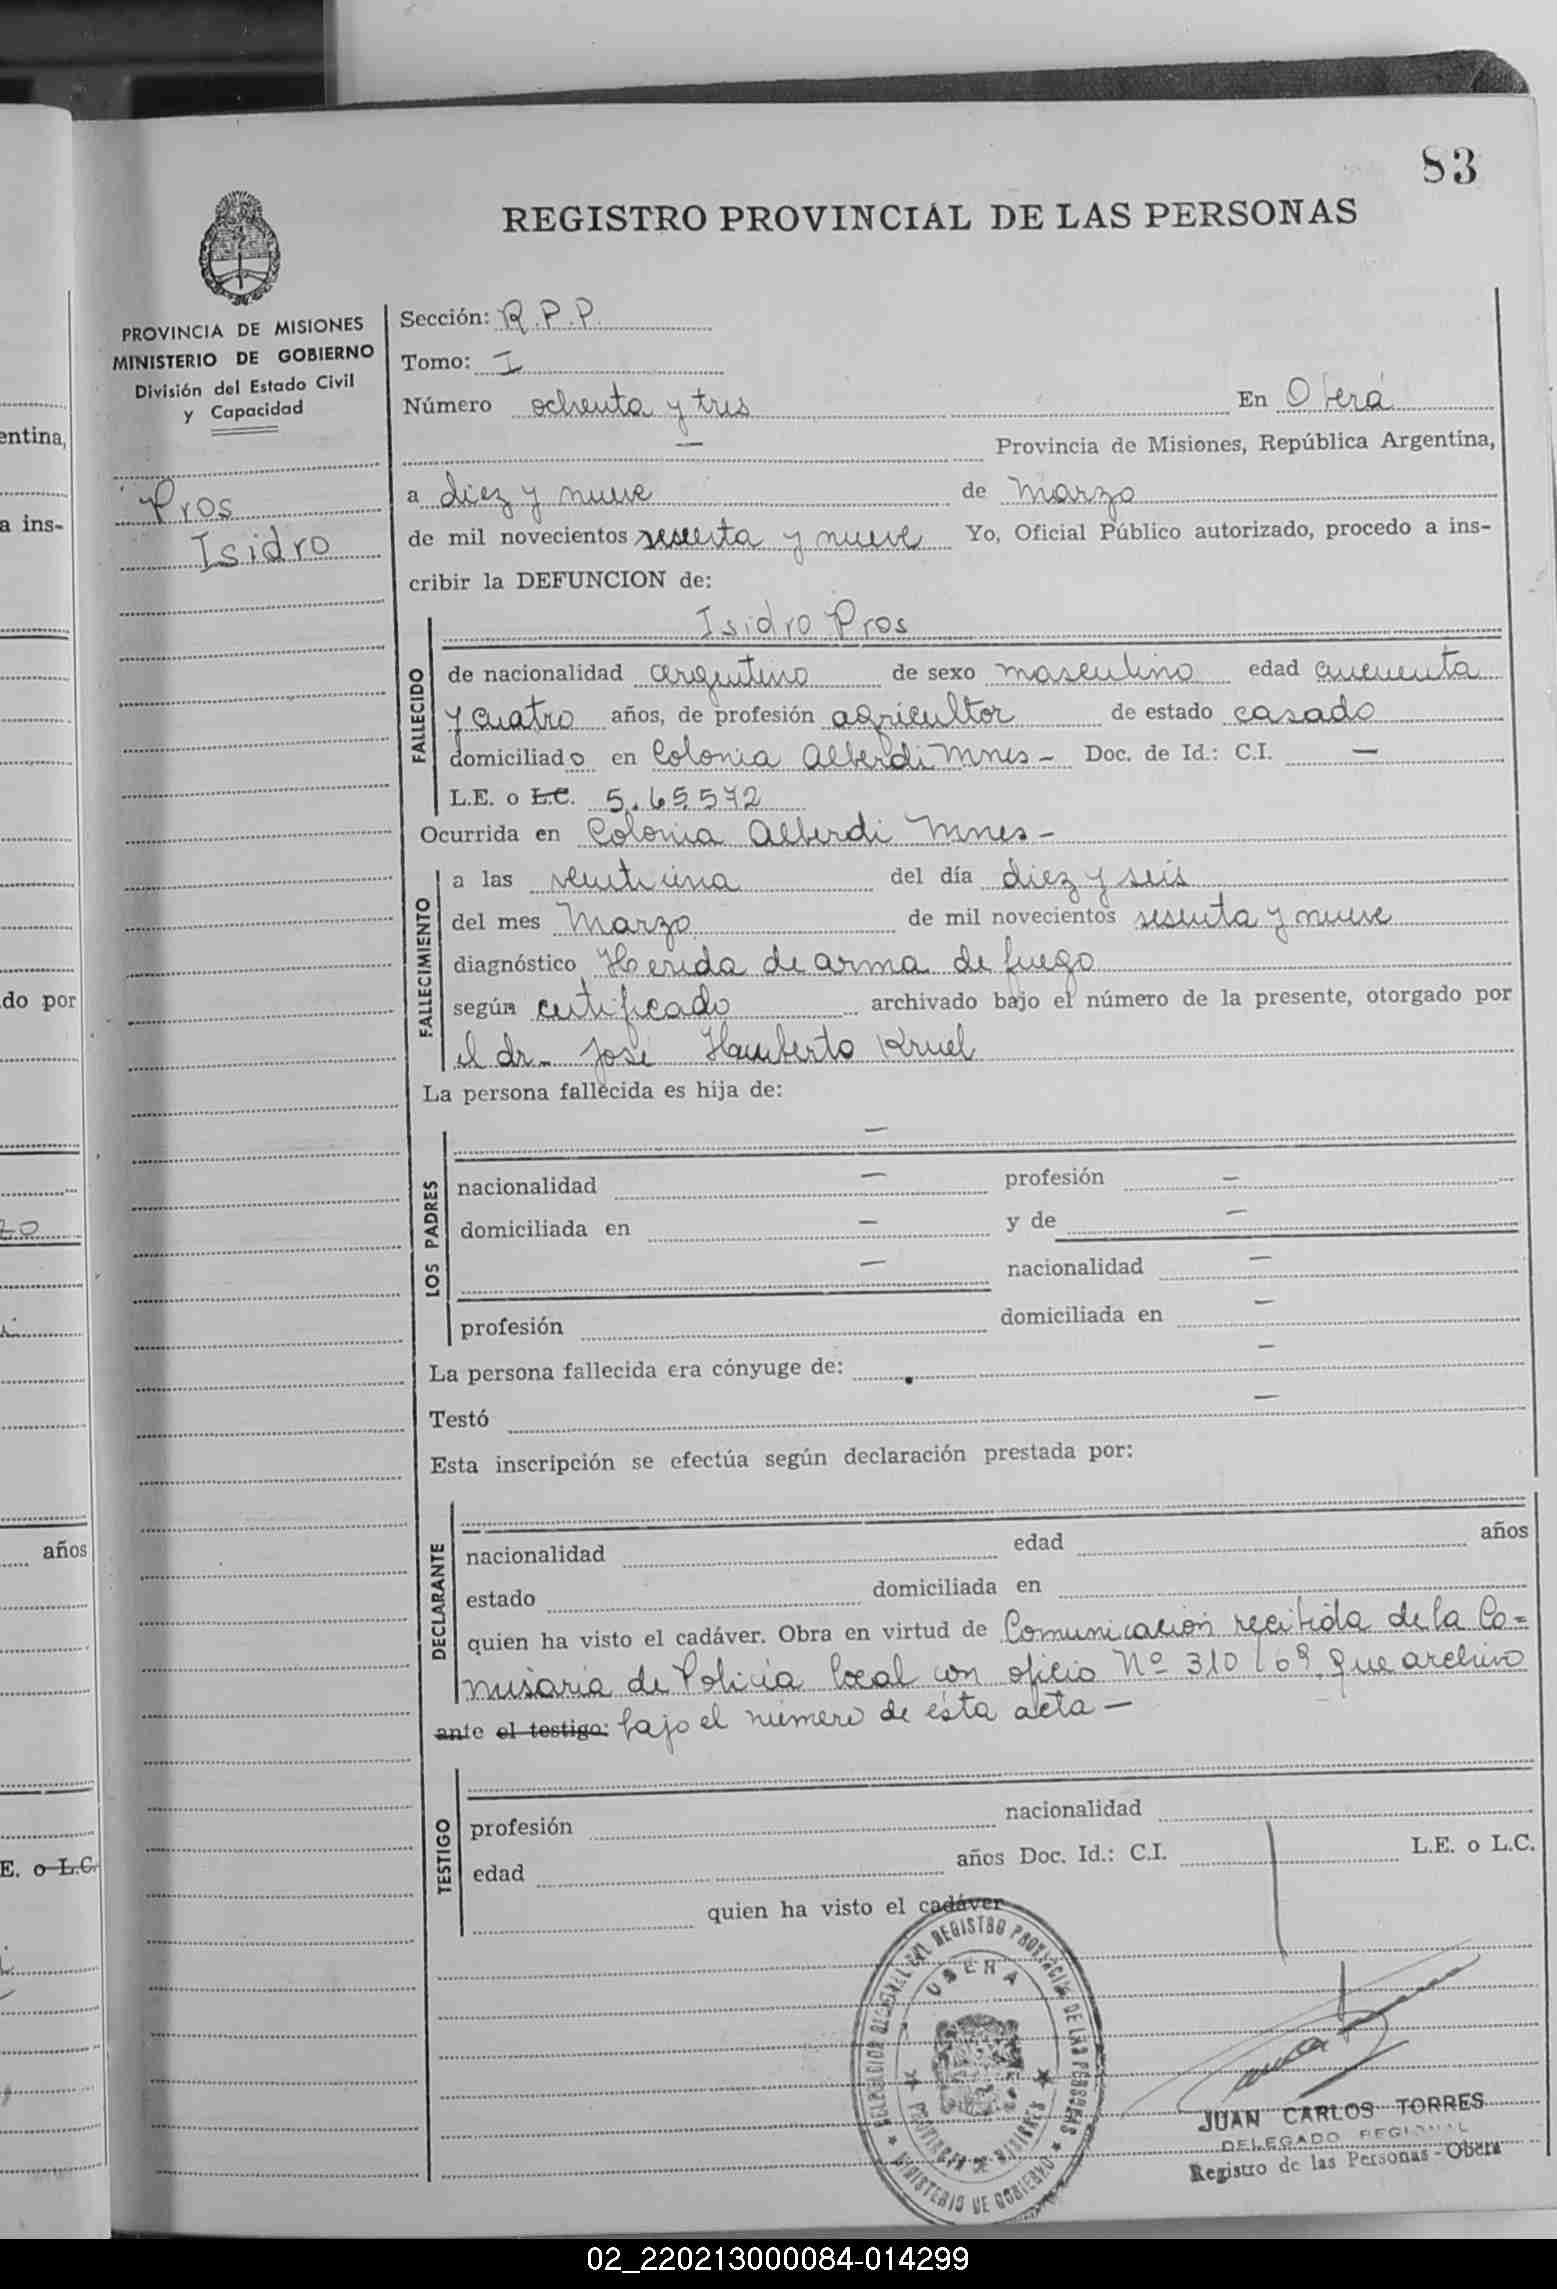 83
REGISTRO PROVINCIAL DE LAS PERSONAS
PROVINCIA DE MISIONES
MINISTERIO DE GOBIERNO
División del Estado Civil
y Capacidad
Pros
Isidro
Sección: R.P.P.
Tomo: I
Número ochenta y tres En Oberá
— Provincia de Misiones, República Argentina,
a diez y nueve de Marzo
de mil novecientos sesenta y nueve Yo, Oficial Público autorizado, procedo a ins-
cribir la DEFUNCION de:
Isidro Pros
FALLECIDO
de nacionalidad argentino de sexo masculino edad cincuenta
y cuatro años, de profesión agricultor de estado casado
domiciliado en Colonia Alberdi Mnes - Doc. de Id.: C.I. —
L.E. o L.C. 5.65.572
Ocurrida en Colonia Alberdi Mnes -
FALLECIMIENTO
a las veintiuna del día diez y seis
del mes Marzo de mil novecientos sesenta y nueve
diagnóstico Herida de arma de fuego
según certificado archivado bajo el número de la presente, otorgado por
el dr. José Humberto Kruel
La persona fallecida es hija de:
—
LOS PADRES
nacionalidad — profesión —
domiciliada en — y de —
— nacionalidad —
profesión domiciliada en —
La persona fallecida era cónyuge de: —
Testó —
Esta inscripción se efectúa según declaración prestada por:
DECLARANTE
nacionalidad edad años
estado domiciliada en
quien ha visto el cadáver. Obra en virtud de Comunicación recibida de la Co=
misaría de Policía local con oficio Nº 310/69 que archivo
ante el testigo: bajo el número de ésta acta —
TESTIGO
profesión nacionalidad
edad años Doc. Id.: C.I. L.E. o L.C.
quien ha visto el cadáver
DELEGACION REGIONAL DEL REGISTRO PROVINCIAL DE LAS PERSONAS
OBERA
PROVINCIA DE MISIONES
MINISTERIO DE GOBIERNO
JUAN CARLOS TORRES
DELEGADO REGIONAL
Registro de las Personas - Oberá
entina,
a ins-
do por
años
E. o L.C.
02_220213000084-014299